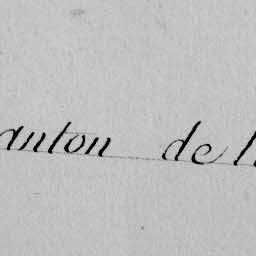 anton de